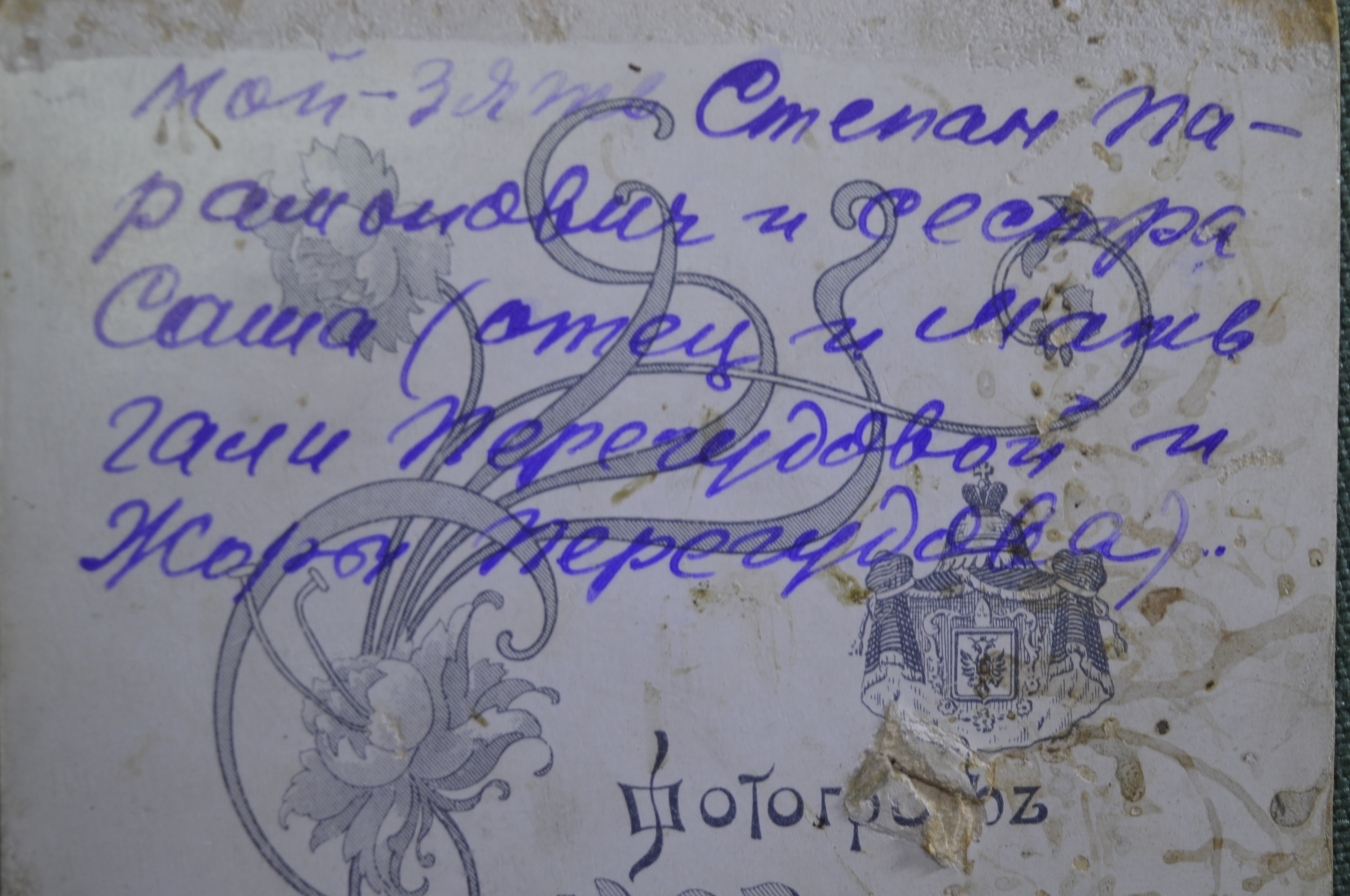 Мой-зять Степан Па-
рамонович и сестра
Саша (отец и мать
Гали Перегудовой и
Жоры Перегудова).
Фотографъ